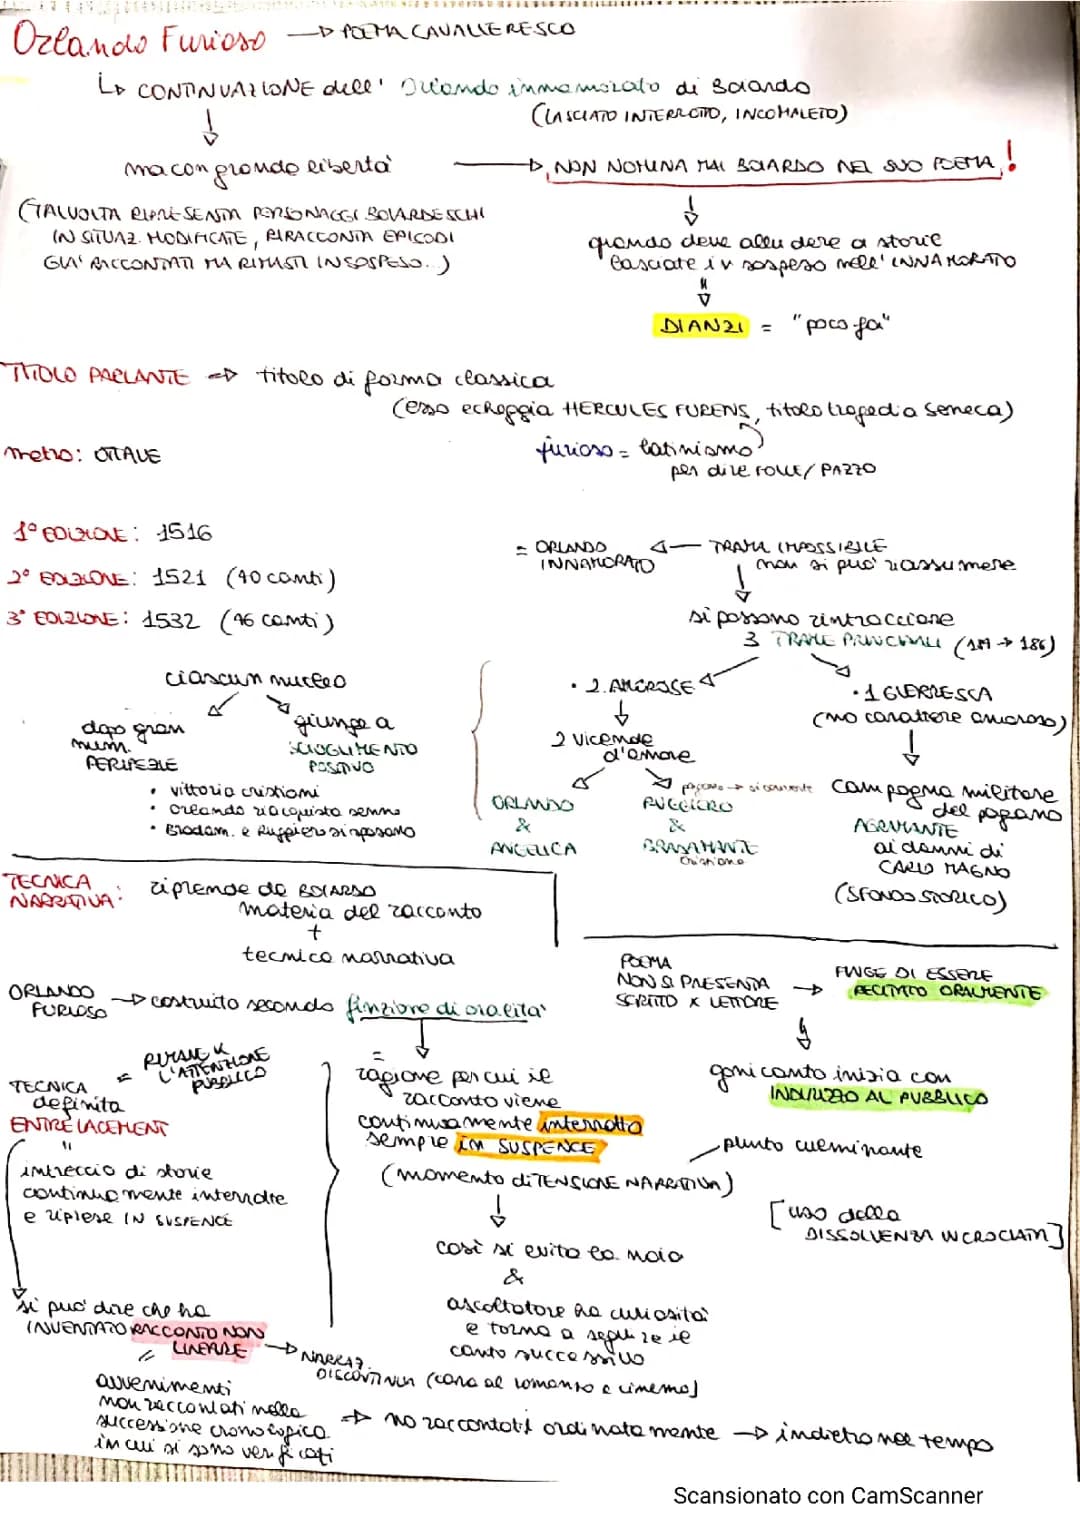 Orlando Furioso → POEMA CAVALLERESCO
↳ CONTINUAZIONE dell' Orlando innamorato di Boiardo
(LASCIATO INTERROTTO, INCOMPLETO)
ma con grande libertà → NON NOMINA MAI BOIARDO NEL SUO POEMA!
(TALVOLTA RIPRESENTA PERSONAGGI BOIARDESCHI
IN SITUAZ. MODIFICATE, RIRACCONTA EPISODI
GIA' RACCONTATI MA RIMASTI IN SOSPESO.)
quando deve alludere a storie
lasciate in sospeso nell' INNAMORATO
DIANZI = "poco fa"
TITOLO PARLANTE => titolo di forma classica
(esso echeggia HERCULES FURENS, titolo tragedia Seneca)
metro: OTTAVE
furioso = latinismo
per dire FOLLE/PAZZO
1° EDIZIONE: 1516
2° EDIZIONE: 1521 (40 canti)
3° EDIZIONE: 1532 (46 canti)
= ORLANDO INNAMORATO ← TRAMA IMPOSSIBILE
non si può riassumere
si possono rintracciare
3 TRAME PRINCIPALI (→ 186)
ciascun nucleo
dopo gran
num.
PERIPEZIE
giunge a
SCIOGLIMENTO
POSITIVO
• vittoria cristiani
• Orlando riacquista senno
• Bradam. e Ruggiero si sposano
• 2. AMOROSE
2 vicende
d'amore
ORLANDO
&
ANGELICA
pagano → si converte
RUGGIERO
&
BRADAMANTE
cristiana
• 1 GUERRESCA
(no carattere amoroso)
campagna militare
del pagano
AGRAMANTE
ai danni di
CARLO MAGNO
(SFONDO STORICO)
TECNICA
NARRATIVA: riprende da BOIARDO
materia del racconto
+
tecnica narrativa
ORLANDO
FURIOSO → costruito secondo finzione di oralità
POEMA
NON SI PRESENTA
SCRITTO X LETTORE → FINGE DI ESSERE
RECITATO ORALMENTE
ogni canto inizia con
INDIRIZZO AL PUBBLICO
=
ragione per cui il
racconto viene
continuamente interrotto
sempre in SUSPENCE
(momento di TENSIONE NARRATIVA)
punto culminante
[uso della
DISSOLVENZA INCROCIATA]
così si evita la noia
&
ascoltatore ha curiosità
e torna a seguire il
canto successivo
TECNICA
definita
ENTRELACEMENT
=
L'ATTENZIONE
PUBBLICO
"
intreccio di storie
continuamente interrotte
e riprese IN SUSPENCE
si può dire che ha
INVENTATO RACCONTO NON
LINEARE → NARRAZ.
DISCONTINUA (cara al romanzo e cinema)
=
avvenimenti
non raccontati nella
successione cronologica
in cui si sono verificati
=> no raccontati ordinatamente → indietro nel tempo
Scansionato con CamScanner